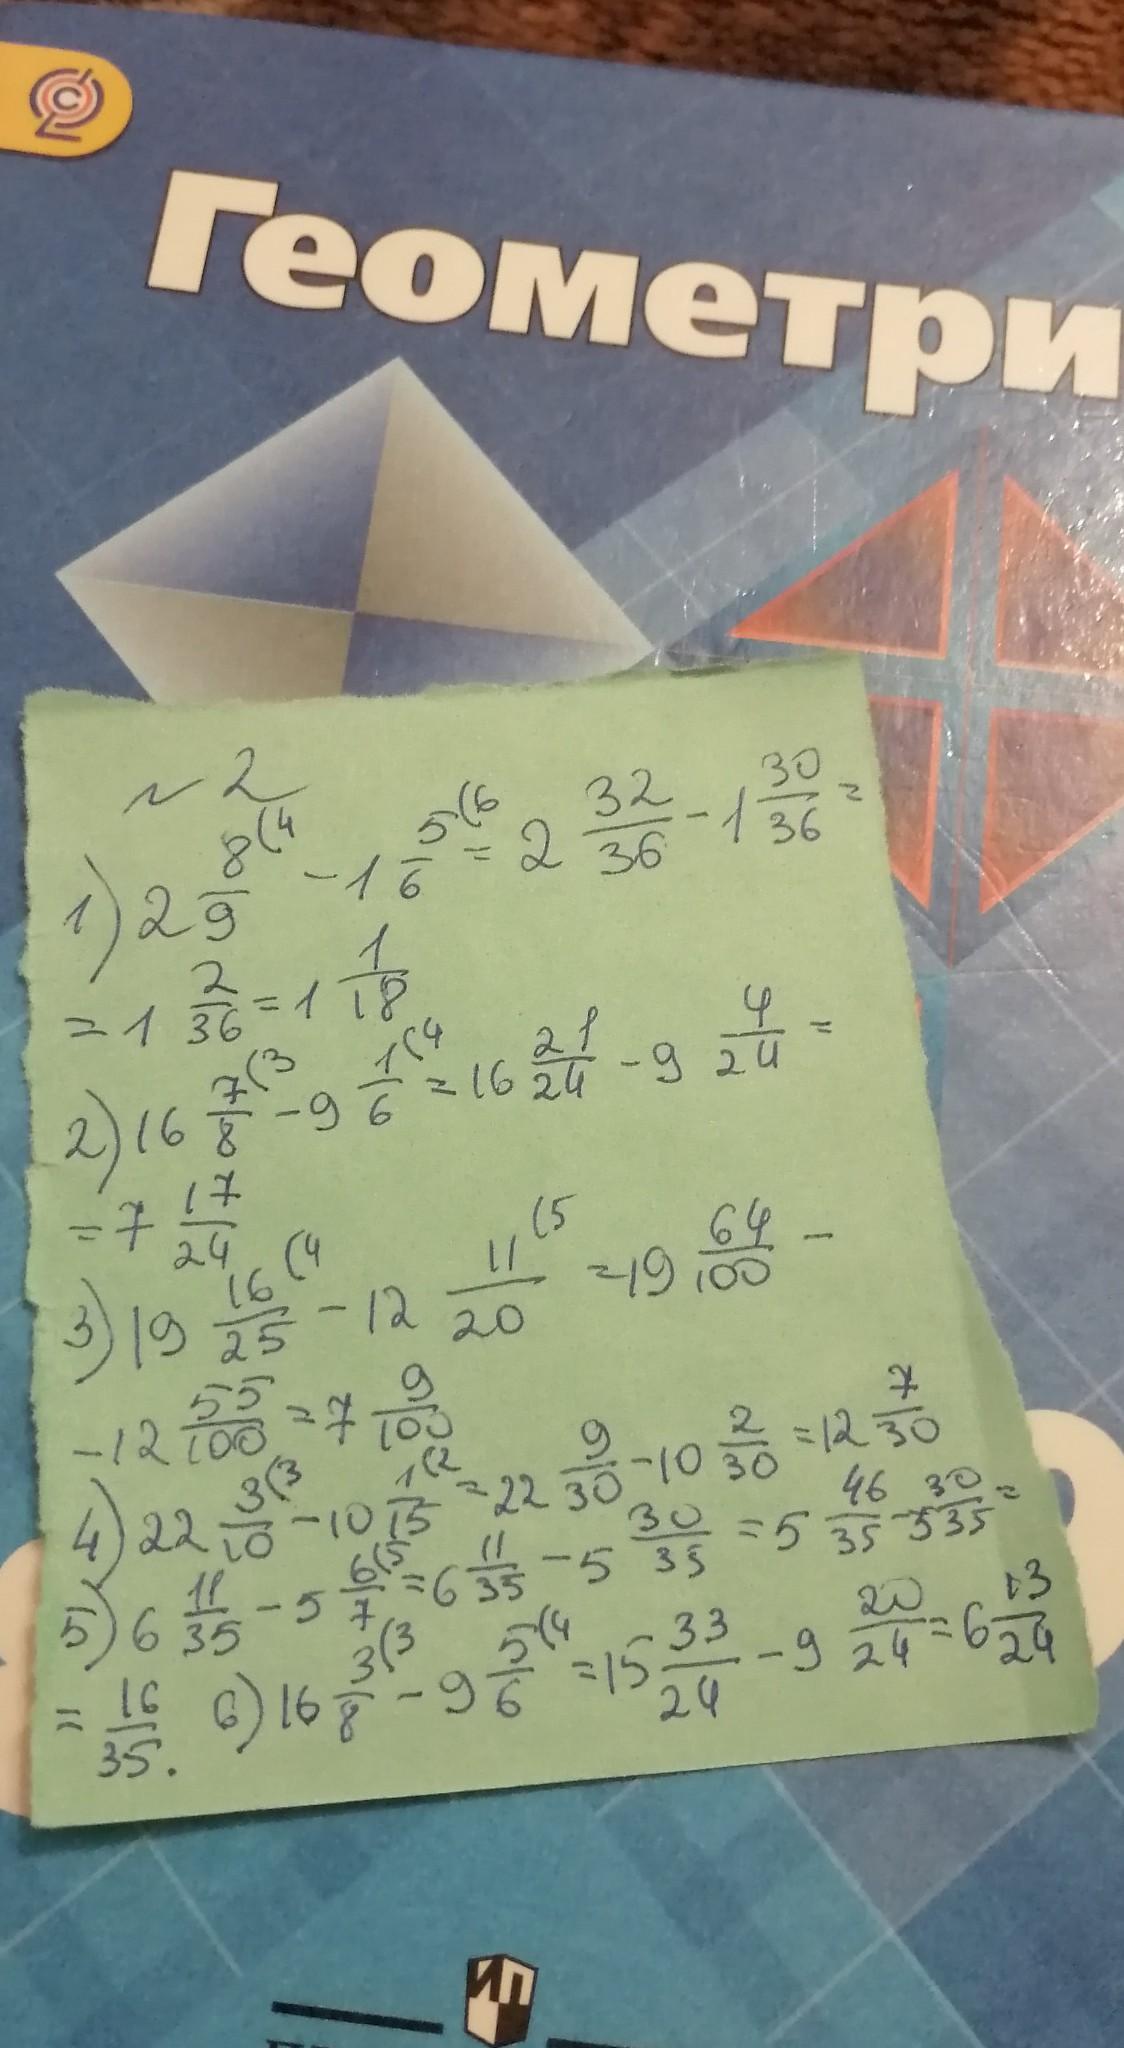 Геометри
№2
1) 2 8/9 (4 - 1 5/6 (6 = 2 32/36 - 1 30/36 =
= 1 2/36 = 1 1/18
2) 16 7/8 (3 - 9 1/6 (4 = 16 21/24 - 9 4/24 =
= 7 17/24
3) 19 16/25 (4 - 12 11/20 (5 = 19 64/100 -
- 12 55/100 = 7 9/100
4) 22 3/10 (3 - 10 1/15 (2 = 22 9/30 - 10 2/30 = 12 7/30
5) 6 11/35 - 5 6/7 (5 = 6 11/35 - 5 30/35 = 5 46/35 - 5 30/35 =
= 16/35. 6) 16 3/8 (3 - 9 5/6 (4 = 15 33/24 - 9 20/24 = 6 13/24
ИП